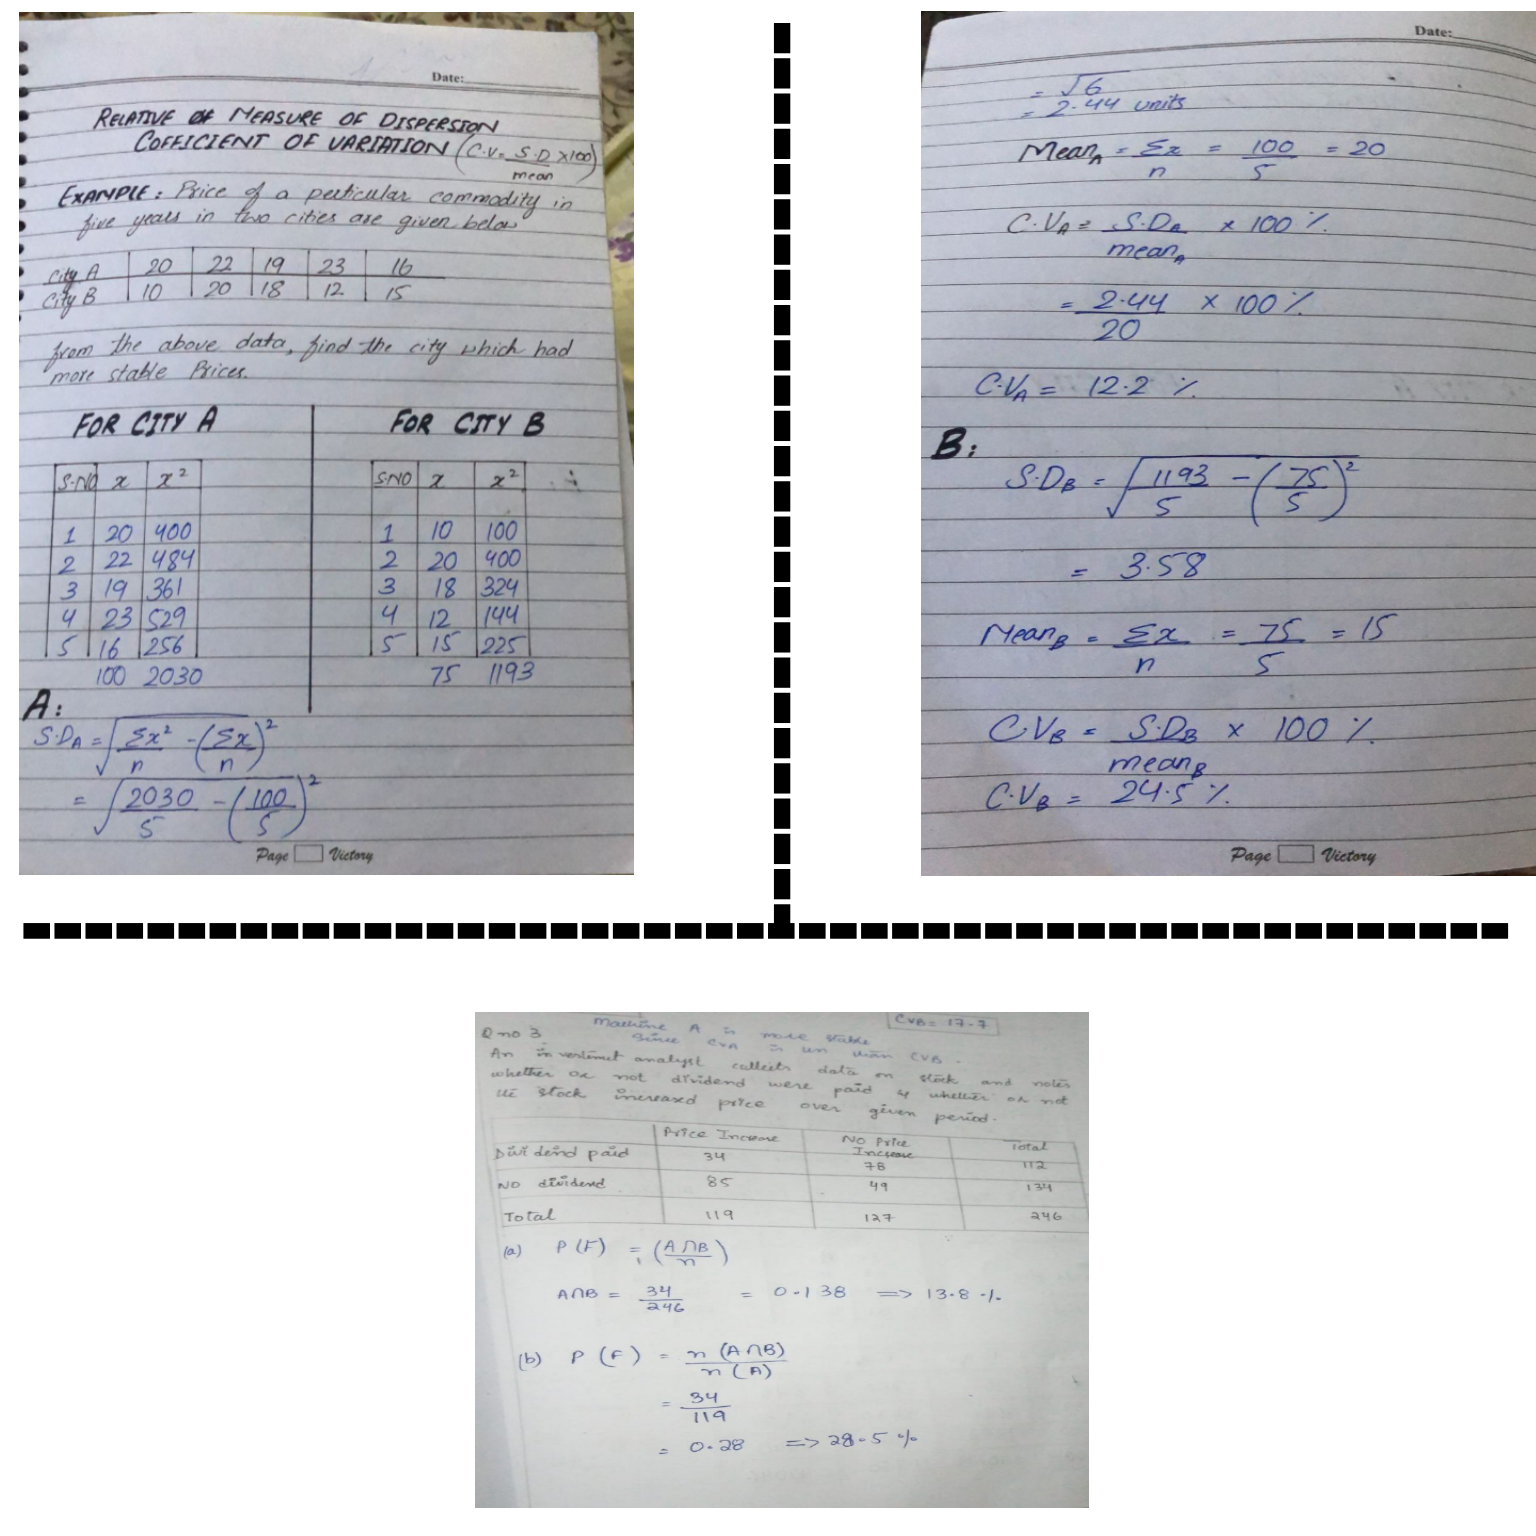 Date:
RELATIVE OF MEASURE OF DISPERSION
COFFICIENT OF VARIATION (C.V= S.D/mean ×100)
EXAMPLE: Price of a perticular commodity in
five years in two cities are given below
City A 20 22 19 23 16
City B 10 20 18 12 15
from the above data, find the city which had
more stable Prices.
FOR CITY A
S.NO x x²
1 20 400
2 22 484
3 19 361
4 23 529
5 16 256
100 2030
FOR CITY B
S.NO x x²
1 10 100
2 20 400
3 18 324
4 12 144
5 15 225
75 1193
A:
S.D_A = √(Σx²/n - (Σx/n)²)
= √(2030/5 - (100/5)²)
Page Victory
Date:
= √6
= 2.44 units
Mean_A = Σx/n = 100/5 = 20
C.V_A = S.D_A/mean_A × 100 %.
= 2.44/20 × 100 %.
C.V_A = 12.2 %.
B:
S.D_B = √(1193/5 - (75/5)²)
= 3.58
Mean_B = Σx/n = 75/5 = 15
C.V_B = S.D_B/mean_B × 100 %.
C.V_B = 24.5 %.
Page Victory
CVB = 17.7
Machine A is more stable
Since CVA is than CVB.
Q no 3
An analyst collects data on stock and notes
whether or not dividend were paid & whether or not
stock increased price over given period.
Price Increase No Price Increase Total
Dividend paid 34 78 112
NO dividend 85 49 134
Total 119 127 246
(a) P(F) = (A∩B/n)
A∩B = 34/246 = 0.138 => 13.8 %
(b) P(F) = n(A∩B)/n(A)
= 34/119
= 0.28 => 28.5 %